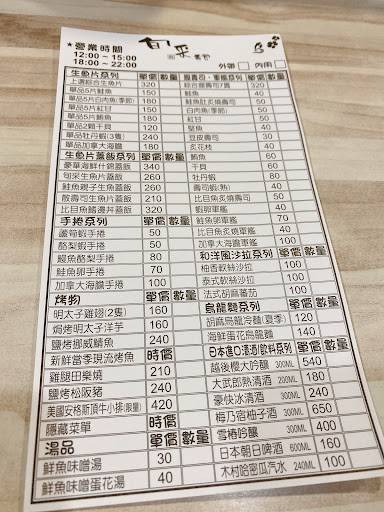 ★營業時間
12:00 ~ 15:00
18:00 ~ 22:00
旬采 壽司
外帶 內用
生魚片系列 單價 數量
上選綜合生魚片 320
單品5片鮭魚 150
單品5片白肉魚(季節) 180
單品5片紅甘 150
單品5片鮪魚 150
單品2顆干貝
單品牡丹蝦(3隻) 240
單品加拿大海膽
生魚片蓋飯系列 單價 數量
豪華海鮮什錦蓋飯 360
旬采生魚片蓋飯 260
鮭魚親子生魚蓋飯 260
散壽司生魚片蓋飯 210
比目魚鰭邊丼蓋飯 320
手捲系列 單價 數量
蘆筍蝦手捲 50
酪梨蝦手捲 50
鰻魚酪梨手捲 80
鮭魚卵手捲 70
加拿大海膽手捲 100
烤物 單價 數量
明太子雞翅(2隻) 160
焗烤明太子洋芋 160
鹽烤挪威鯖魚
新鮮當季現流烤魚 時價
雞腿田樂燒 210
鹽烤松阪豬 240
美國安格斯頂牛小排(限量) 420
隱藏菜單 時價
湯品 單價 數量
鮮魚味噌湯 30
鮮魚味噌蛋花湯 40
握壽司、軍艦系列 單價 數量
綜合握壽司7貫 320
鮭魚 40
鮭魚肚炙燒壽司
白肉魚(季節)
紅甘
堅魚
豆皮壽司
炙花枝
鮪魚
干貝
牡丹蝦
壽司蝦(熟) 40
比目魚炙燒壽司
蝦卵軍艦
鮭魚卵軍艦 70
比目魚炙燒軍艦
加拿大海膽軍艦 100
和洋風沙拉系列 單價 數量
柚香軟絲沙拉 100
泰式軟絲沙拉 100
法式胡麻蕃茄 100
烏龍麵系列 單價 數量
胡麻烏龍冷麵(夏季) 120
海鮮蛋花烏龍麵 120
日本進口酒類/飲料系列 單價 數量
越後櫻大吟釀 300ML 540
大武郎熱清酒 180
豪快冰清酒 300ML 240
梅乃宿柚子酒 300ML 650
雪椿吟釀 300ML 400
日本朝日啤酒 500ML 160
木村哈密瓜汽水 240ML 100